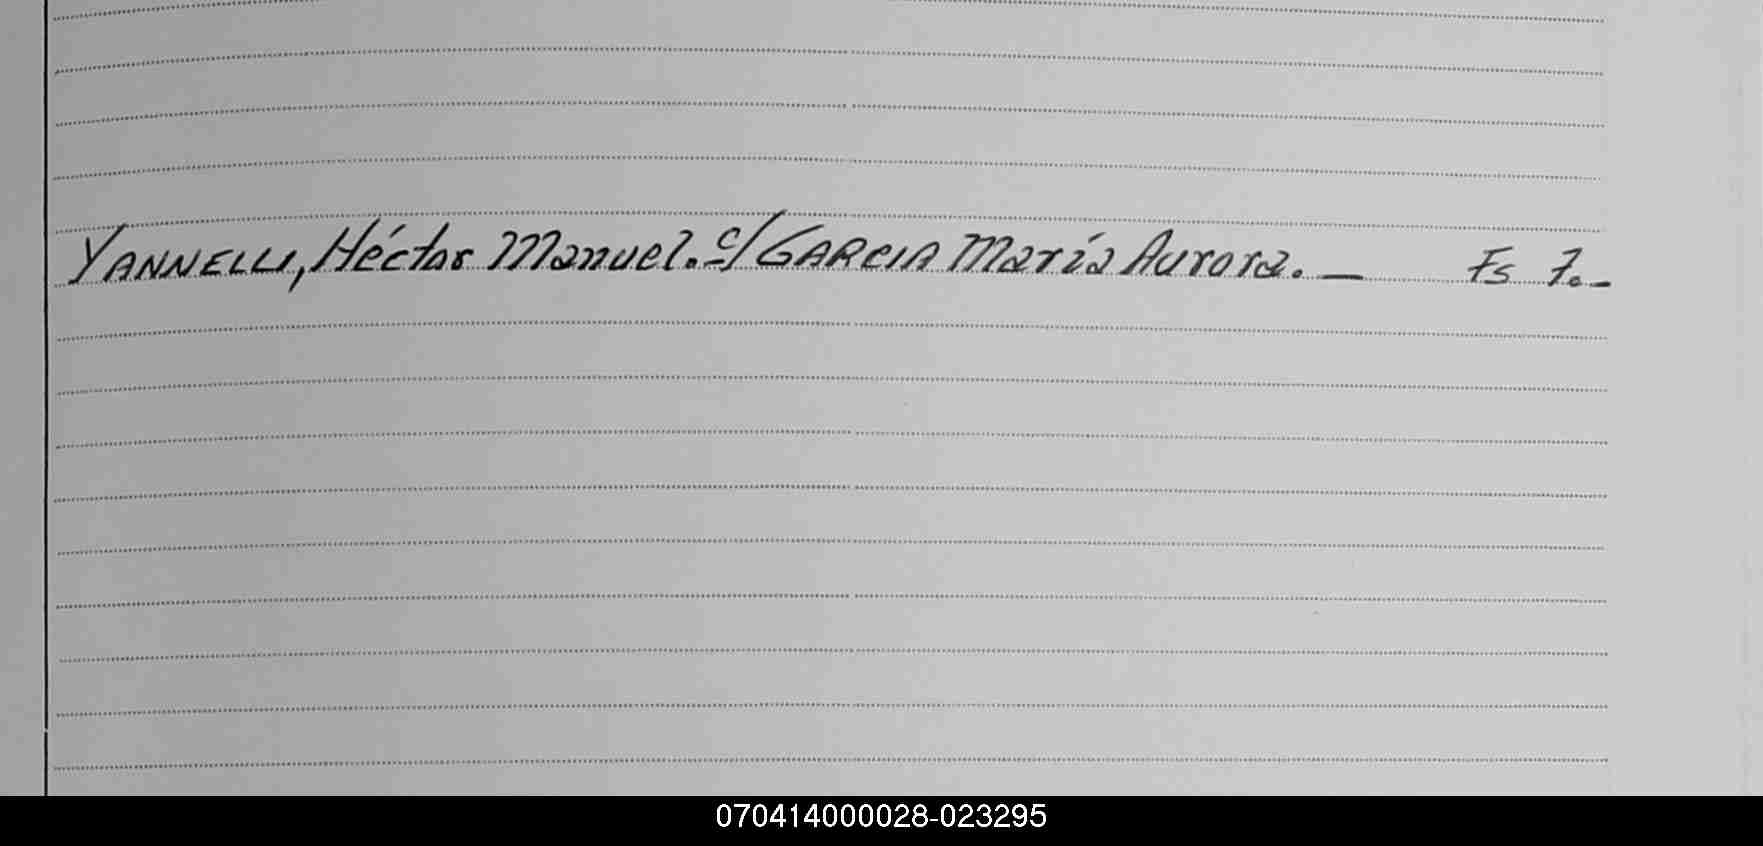 YANNELLI, Héctor Manuel. c/ GARCIA María Aurora. — Fs 7.-
070414000028-023295